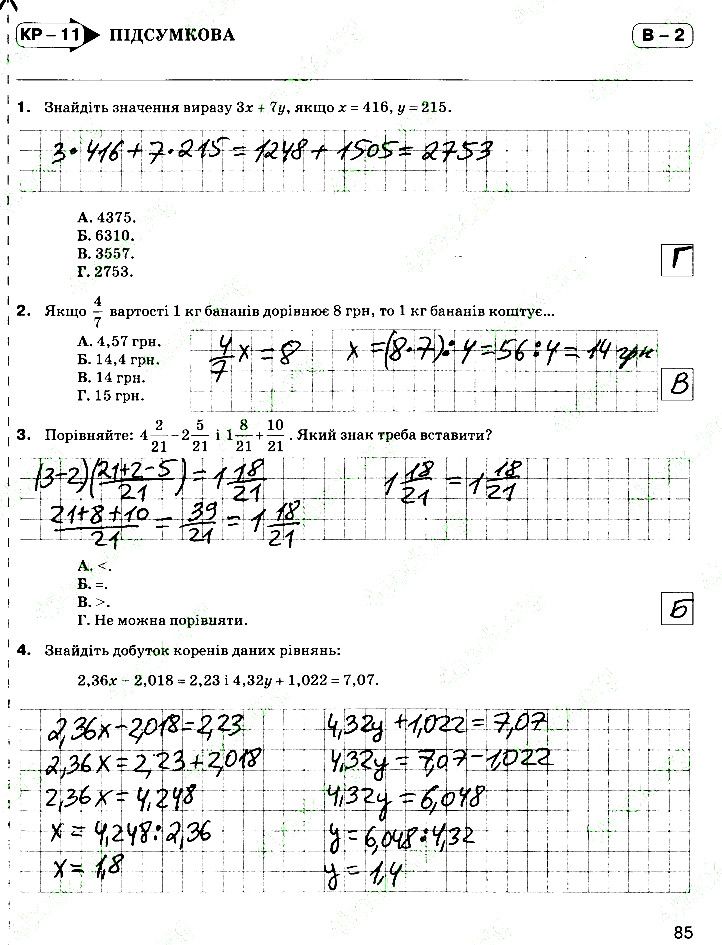 КР – 11 ПІДСУМКОВА В – 2
1. Знайдіть значення виразу 3x + 7y, якщо x = 416, y = 215.
3·416+7·215=1248+1505=2753
А. 4375.
Б. 6310.
В. 3557.
Г. 2753.
Г
2. Якщо 4/7 вартості 1 кг бананів дорівнює 8 грн, то 1 кг бананів коштує...
А. 4,57 грн.
Б. 14,4 грн.
В. 14 грн.
Г. 15 грн.
4/7 x = 8 x = (8·7):4=56:4=14 грн
В
3. Порівняйте: 4 2/21 – 2 5/21 і 1 8/21 + 10/21. Який знак треба вставити?
(3-2)(21+2-5/21)=1 18/21 1 18/21 = 1 18/21
21+8+10/21 = 39/21 = 1 18/21
А. <.
Б. =.
В. >.
Г. Не можна порівняти.
Б
4. Знайдіть добуток коренів даних рівнянь:
2,36x – 2,018 = 2,23 і 4,32y + 1,022 = 7,07.
2,36x-2,018=2,23 4,32y+1,022=7,07
2,36x=2,23+2,018 4,32y=7,07-1,022
2,36x=4,248 4,32y=6,048
x=4,248:2,36 y=6,048:4,32
x=1,8 y=1,4
85